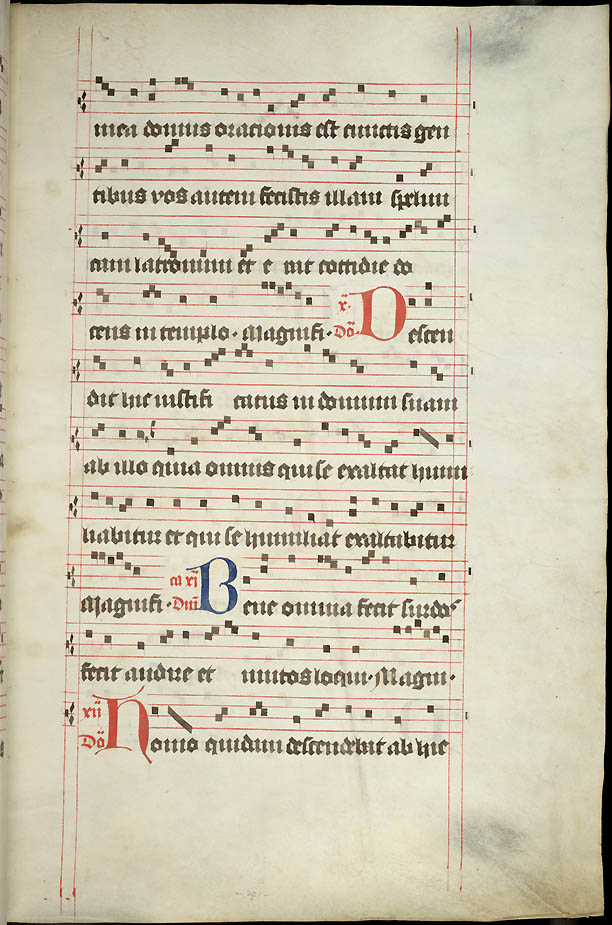 mea domus oracionis est cunctis gen
tibus vos autem fecistis illam spelun
cam latronum et e rat cottidie do
cens in templo. Magnifi. x. Do. Descen
dit hic iustifi catus in domum suam
ab illo quia omnis qui se exaltat humi
liabitur et qui se humiliat exaltabitur
Magnifi. ca xi Dni Bene omnia fecit surdos
fecit audire et mutos loqui. Magni.
xii Do Homo quidam descendebat ab hie